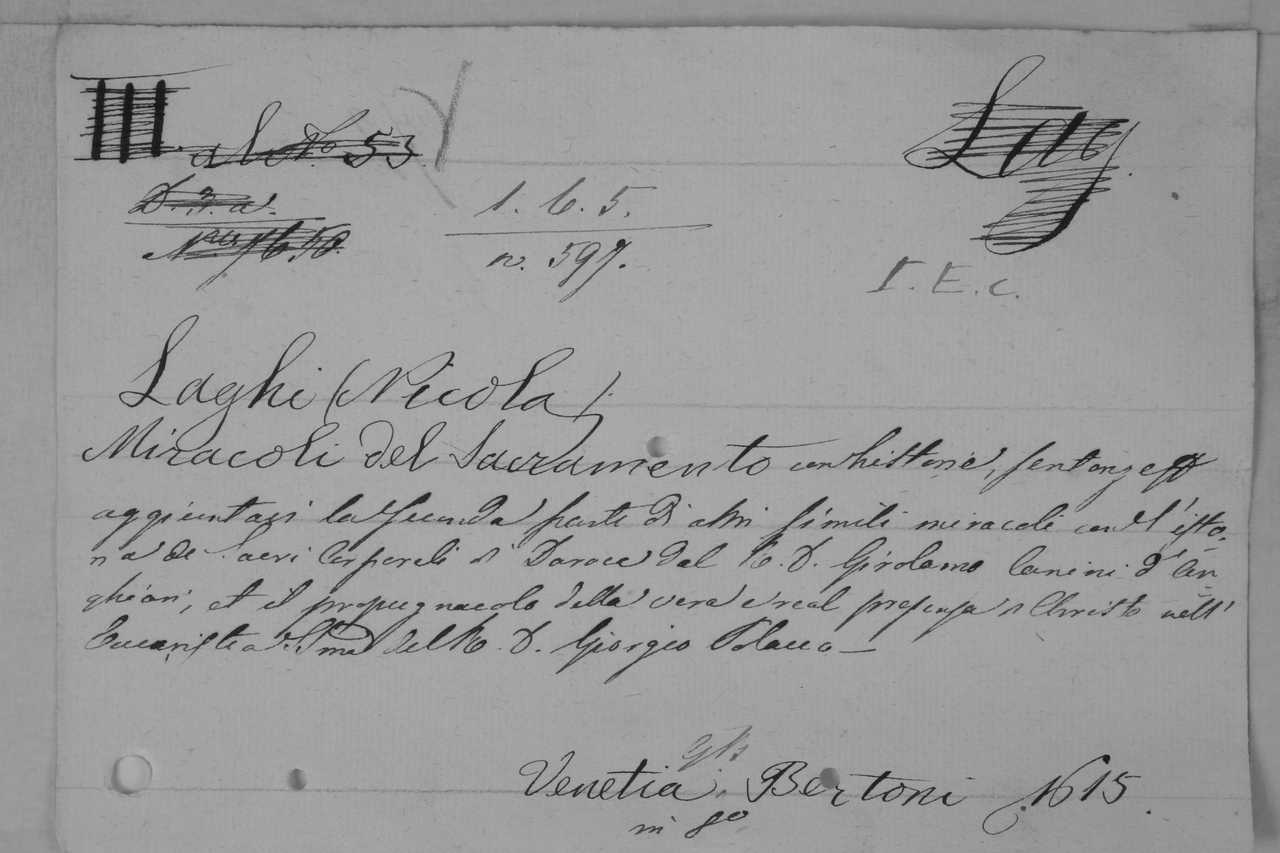 III. al No. 53
Lag
D. 3. a.
1. 6. 5.
n. 597.
I. E. c.
Laghi (Nicola)
Miracoli del Sacramento con historie, sentenze
aggiuntavi la seconda parte di altri simili miracoli con l'isto-
ria de Sacri Corporali di Daroca dal R. D. Girolamo Canini d'An-
ghiari, et il propugnacolo della vera e real presenza di Christo nell'
Eucaristia SSma del R. D. Giorgio Polacco —
Venetia, Bertoni 1615.
in 8o